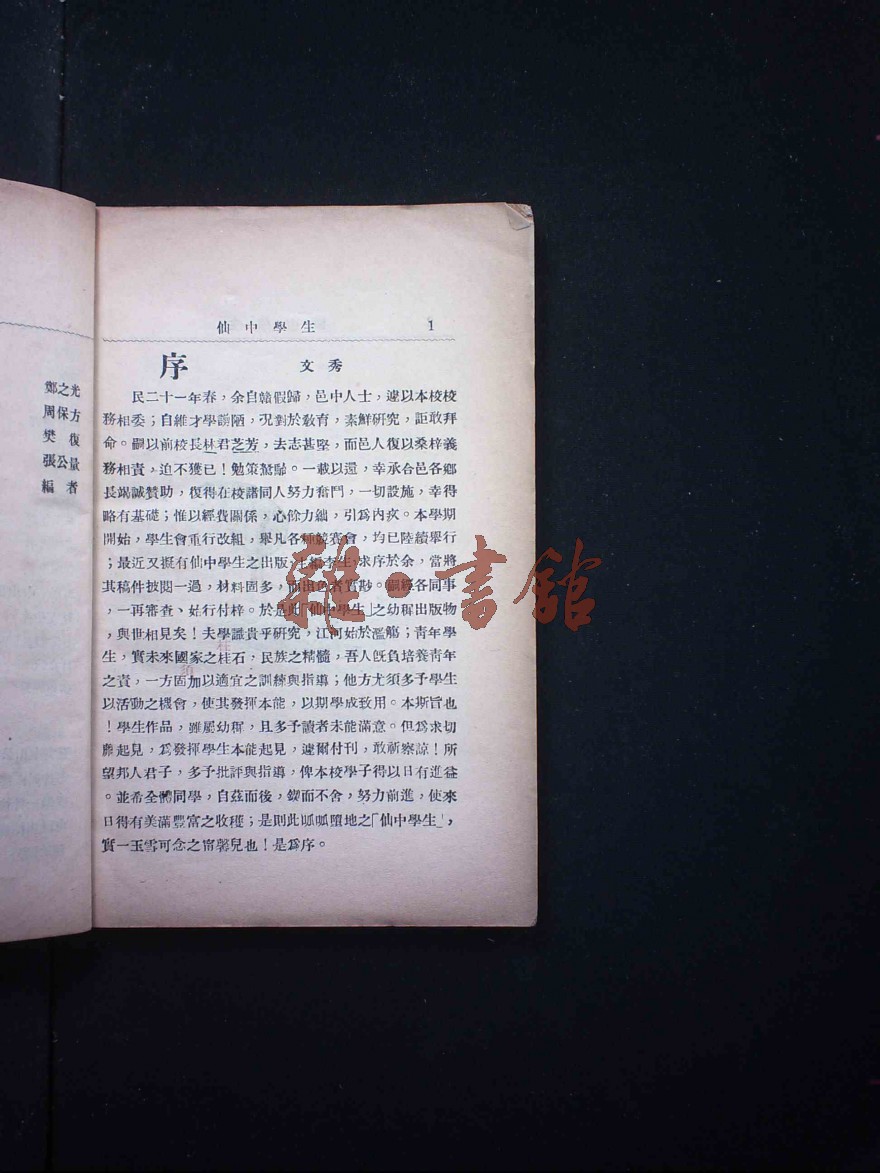 鄭之光
周保方
樊復
張公量
編者
仙中學生 1
序 文秀
民二十一年春，余自贛假歸，邑中人士，遽以本校校
務相委；自維才學譾陋，况對於教育，素鮮研究，詎敢拜
命。嗣以前校長林君芝芳，去志甚堅，而邑人復以桑梓義
務相責，迫不獲已！勉策駑駘。一載以還，幸承合邑各鄉
長竭誠贊助，復得在校諸同人努力奮鬥，一切設施，幸得
略有基礎；惟以經費關係，心餘力絀，引為內疚。本學期
開始，學生會重行改組，舉凡各種競賽會，均已陸續舉行
；最近又擬有仙中學生之出版，主編李生，求序於余，當將
其稿件披閱一過，材料固多，而出色者實尠。嗣經各同事
，一再審查、始行付梓。於是此「仙中學生」之幼稺出版物
，與世相見矣！夫學識貴乎研究，江河始於濫觴；青年學
生，實未來國家之柱石，民族之精髓，吾人旣負培養青年
之責，一方固加以適宜之訓練與指導；他方尤須多予學生
以活動之機會，使其發揮本能，以期學成致用。本斯旨也
！學生作品，雖屬幼稺，且多予讀者未能滿意。但爲求切
磨起見，爲發揮學生本能起見，遽爾付刊，敢祈察諒！所
望邦人君子，多予批評與指導，俾本校學子得以日有進益
。並希全體同學，自茲而後，鍥而不舍，努力前進，使來
日得有美滿豐富之收穫；是則此呱呱墮地之「仙中學生」，
實一玉雪可念之甯馨兒也！是爲序。
雜·書館